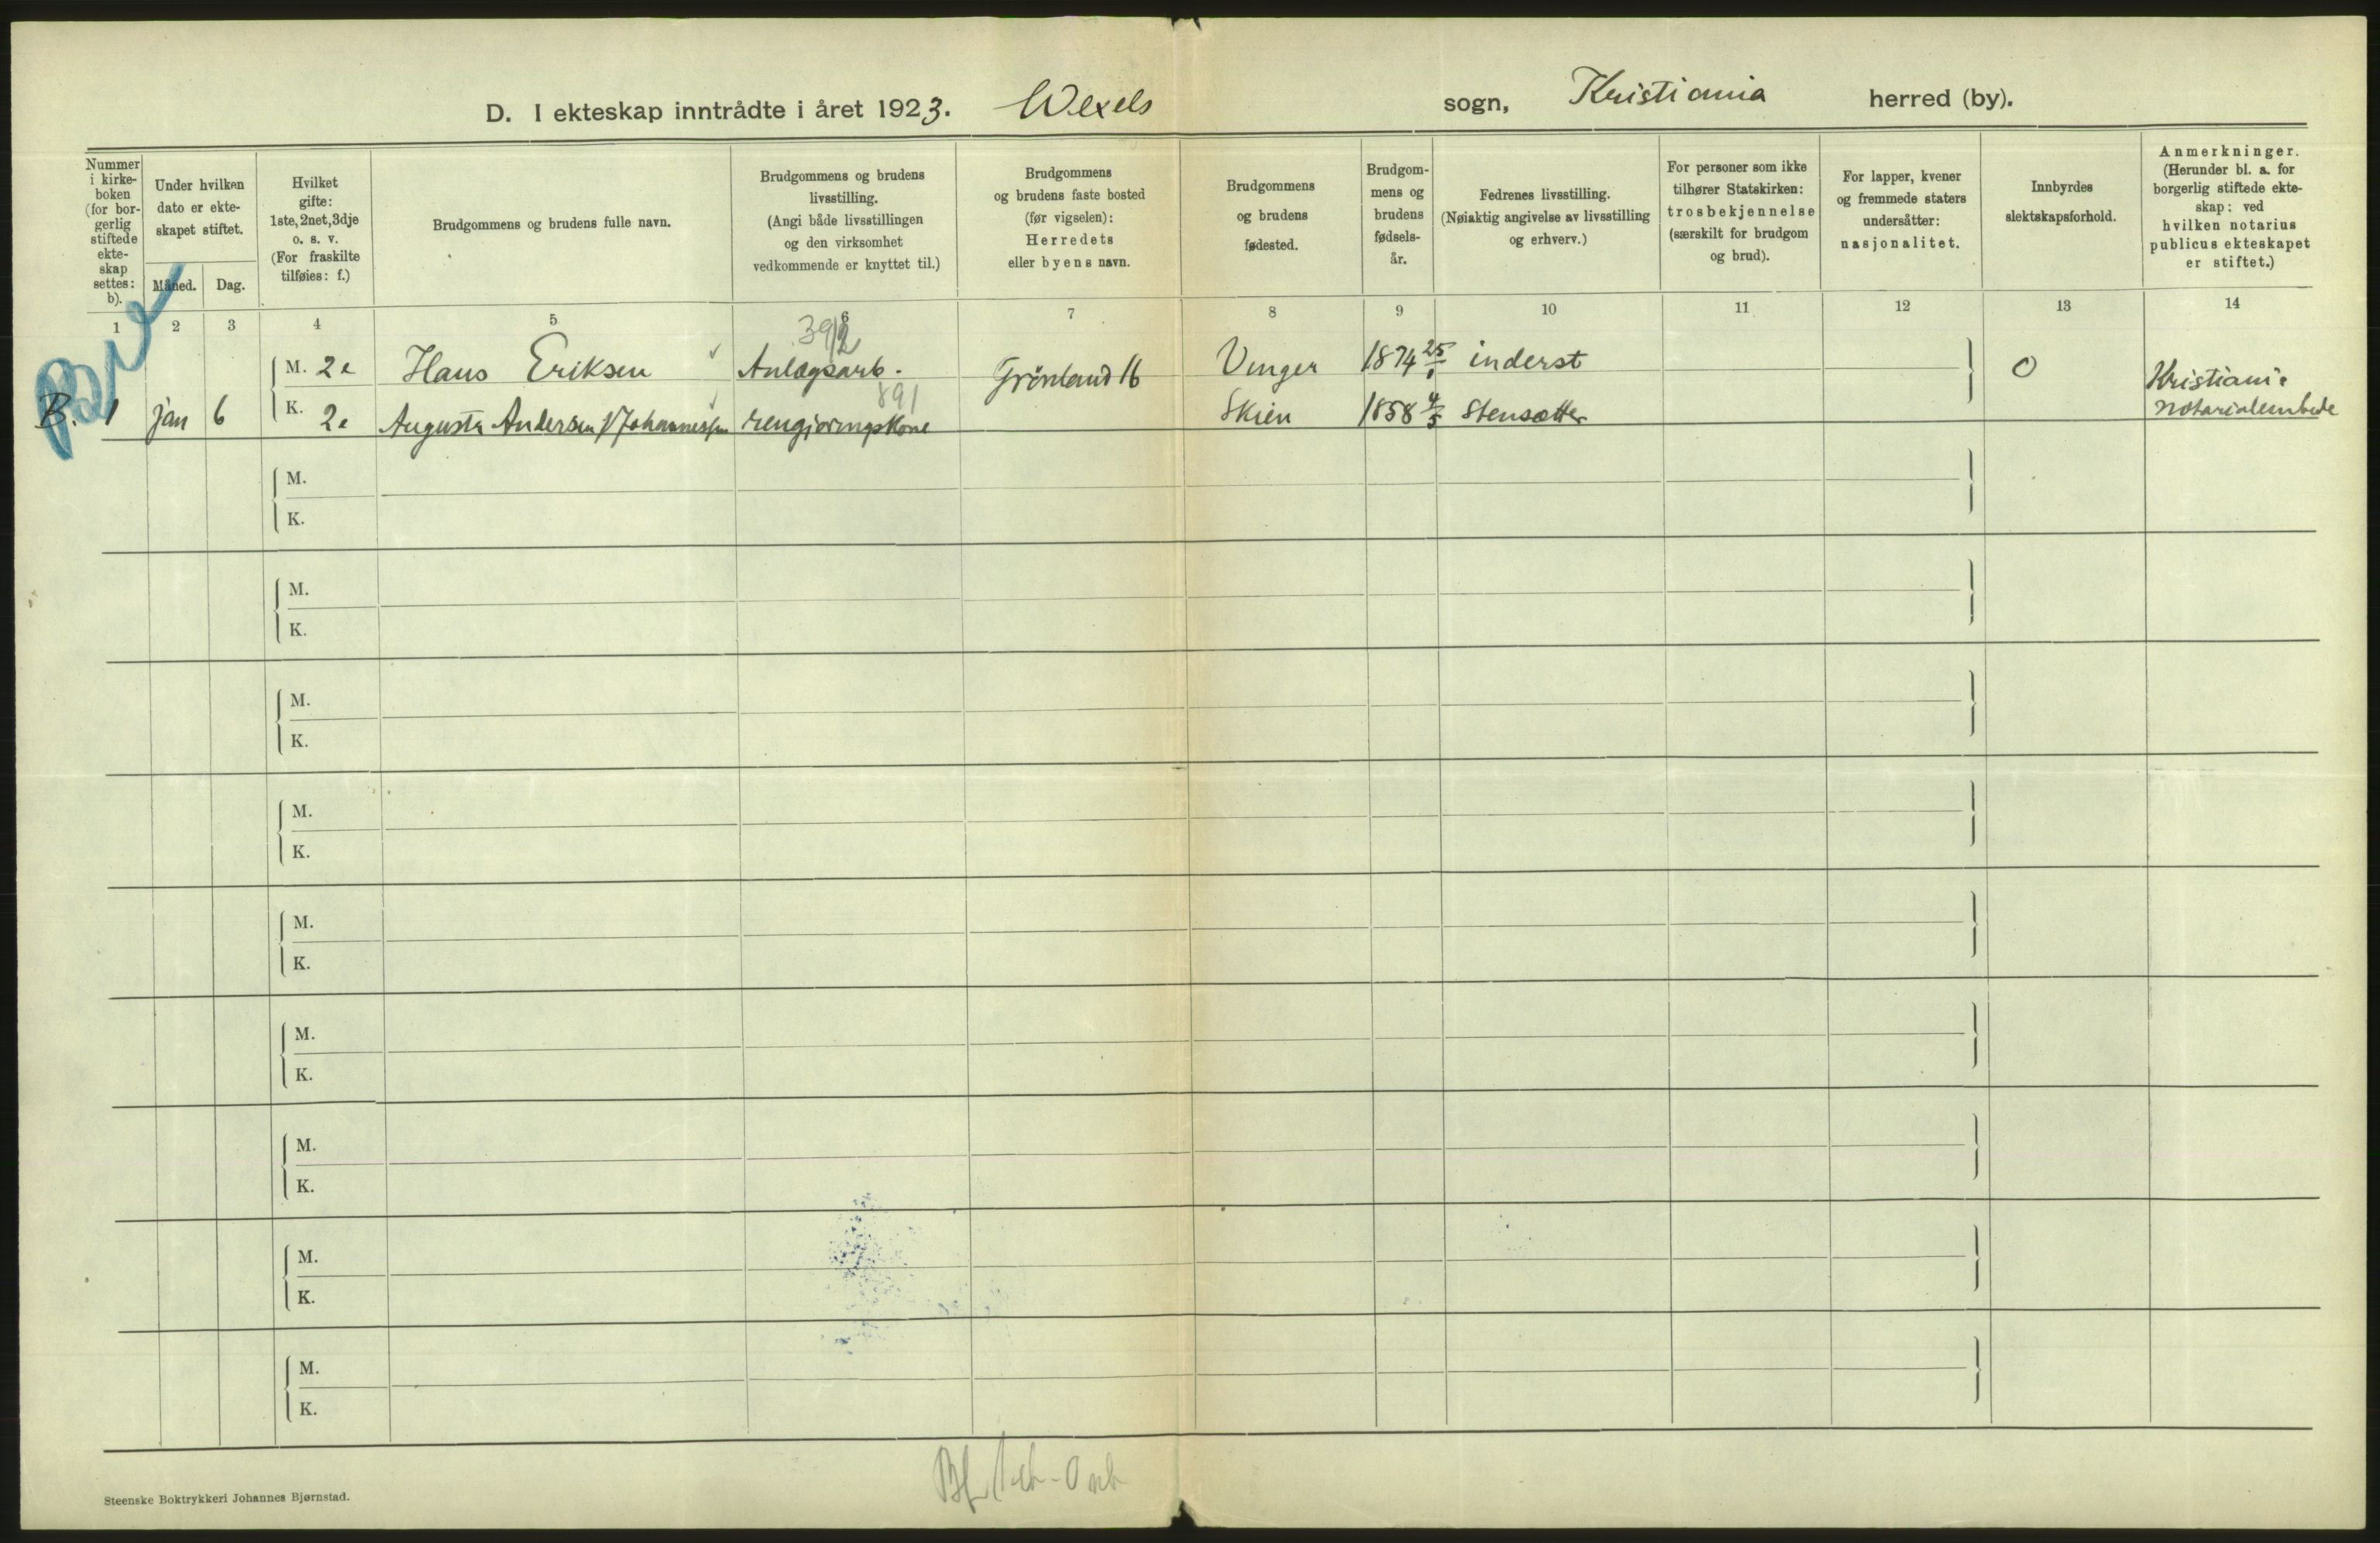 D. I ekteskap inntrådte i året 1923. Wexels sogn, Kristiania herred (by).
Nummer
i kirke-
boken
(for bor-
gerlig
stiftede
ekte-
skap
settes:
b).
Under hvilken
dato er ekte-
skapet stiftet.
Måned. Dag.
Hvilket
gifte:
1ste, 2net, 3dje
o. s. v.
(For fraskilte
tilføies: f.)
Brudgommens og brudens fulle navn.
Brudgommens og brudens
livsstilling.
(Angi både livsstillingen
og den virksomhet
vedkommende er knyttet til.)
Brudgommens
og brudens faste bosted
(før vigselen):
Herredets
eller byens navn.
Brudgommens
og brudens
fødested.
Brudgom-
mens og
brudens
fødsels-
år.
Fedrenes livsstilling.
(Nøiaktig angivelse av livsstilling
og erhverv.)
For personer som ikke
tilhører Statskirken:
trosbekjennelse
(særskilt for brudgom
og brud).
For lapper, kvener
og fremmede staters
undersåtter:
nasjonalitet.
Innbyrdes
slektskapsforhold.
Anmerkninger.
(Herunder bl. a. for
borgerlig stiftede ekte-
skap: ved
hvilken notarius
publicus ekteskapet
er stiftet.)
1 2 3 4 5 6 7 8 9 10 11 12 13 14
392
M. 2e Hans Eriksen Anlægsarb. Grønland 16 Vinger 1874 25/1 inderst 0 Kristiania
891
B. 1 jan 6 K. 2e Augusta Andersen f/ Johannessen rengjøringskone Skien 1858 4/5 Stensætter notarialembede
M.
K.
M.
K.
M.
K.
M.
K.
M.
K.
M.
K.
M.
K.
M.
K.
M.
K.
Steenske Boktrykkeri Johannes Bjørnstad.